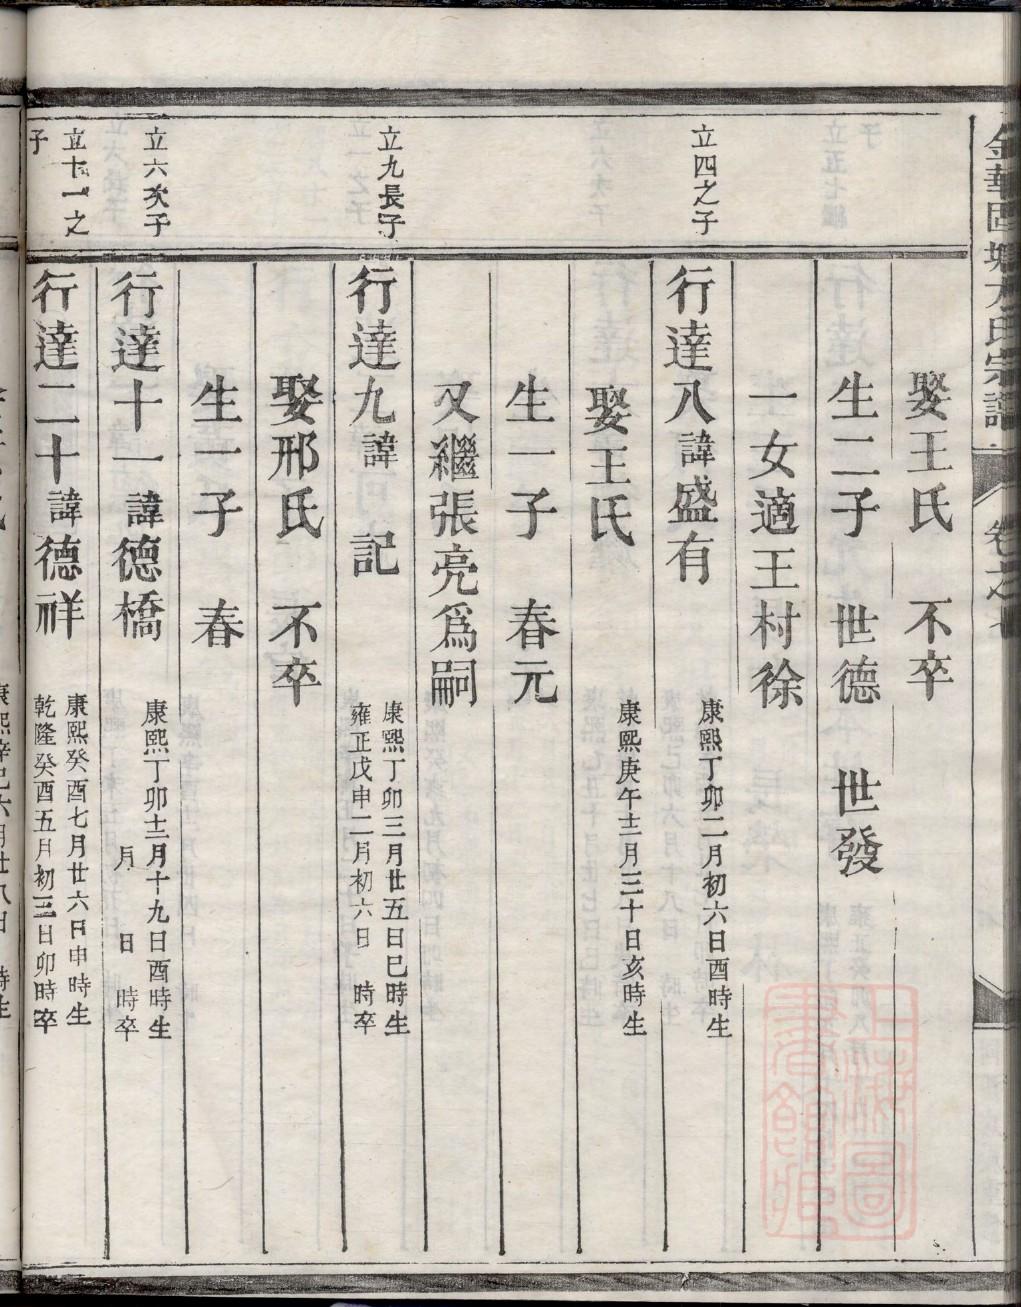 娶王氏 不卒
生二子 世德 世發
一女適王村徐
立四之子
行達八諱盛有 康熙丁卯二月初六日酉時生
娶王氏 康熙庚午十二月三十日亥時生
生一子 春元
又繼張亮爲嗣
立九長子
行達九諱 記 康熙丁卯三月廿五日巳時生
雍正戊申二月初六日 時卒
娶邢氏 不卒
生一子 春
立六次子
行達十一諱德橋 康熙丁卯十二月十九日酉時生
月 日 時卒
立十一之
子
行達二十諱德祥 康熙癸酉七月廿六日申時生
乾隆癸酉五月初三日卯時卒